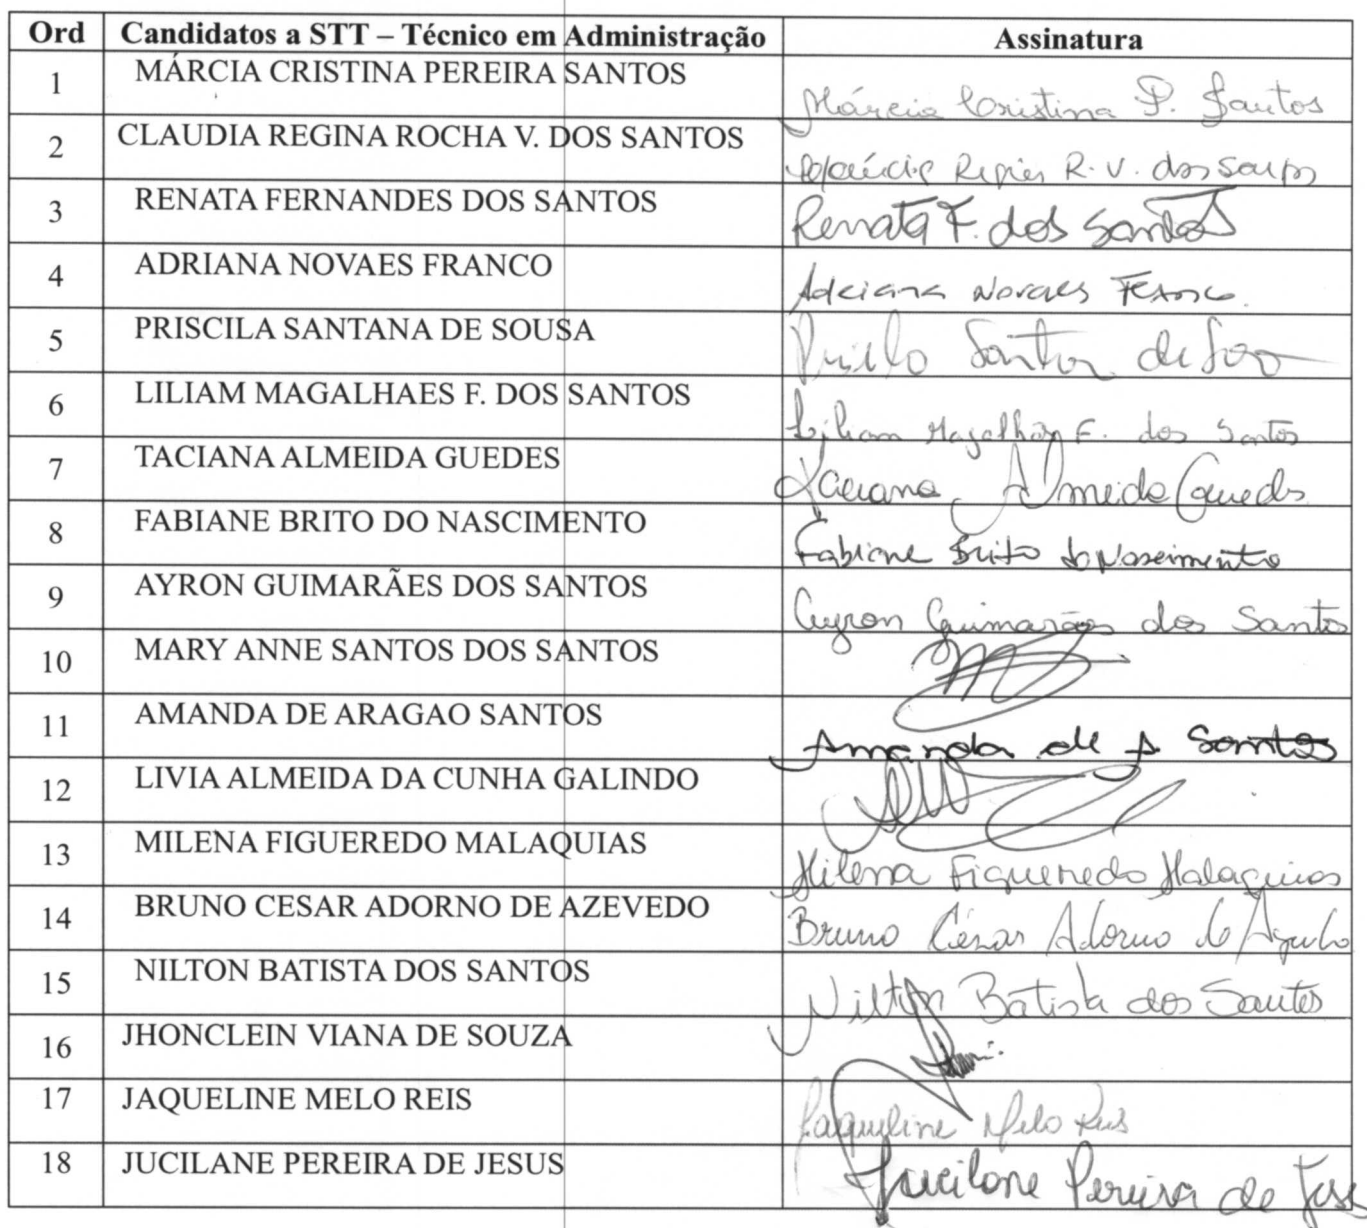 Ord Candidatos a STT – Técnico em Administração Assinatura
1 MÁRCIA CRISTINA PEREIRA SANTOS Márcia Cristina P. Santos
2 CLAUDIA REGINA ROCHA V. DOS SANTOS R. V. dos
3 RENATA FERNANDES DOS SANTOS Renata F. dos Santos
4 ADRIANA NOVAES FRANCO Adriana Novaes Franco
5 PRISCILA SANTANA DE SOUSA
6 LILIAM MAGALHAES F. DOS SANTOS Liliam Magalhães F. dos Santos
7 TACIANA ALMEIDA GUEDES Taciana Almeida Guedes
8 FABIANE BRITO DO NASCIMENTO Fabiane Brito do Nascimento
9 AYRON GUIMARÃES DOS SANTOS Ayron Guimarães dos Santos
10 MARY ANNE SANTOS DOS SANTOS
11 AMANDA DE ARAGAO SANTOS Amanda de A Santos
12 LIVIA ALMEIDA DA CUNHA GALINDO
13 MILENA FIGUEREDO MALAQUIAS Milena Figueredo Malaquias
14 BRUNO CESAR ADORNO DE AZEVEDO Bruno César Adorno de Azevedo
15 NILTON BATISTA DOS SANTOS Nilton Batista dos Santos
16 JHONCLEIN VIANA DE SOUZA
17 JAQUELINE MELO REIS Jaqueline Melo Reis
18 JUCILANE PEREIRA DE JESUS Jucilane Pereira de Jesus